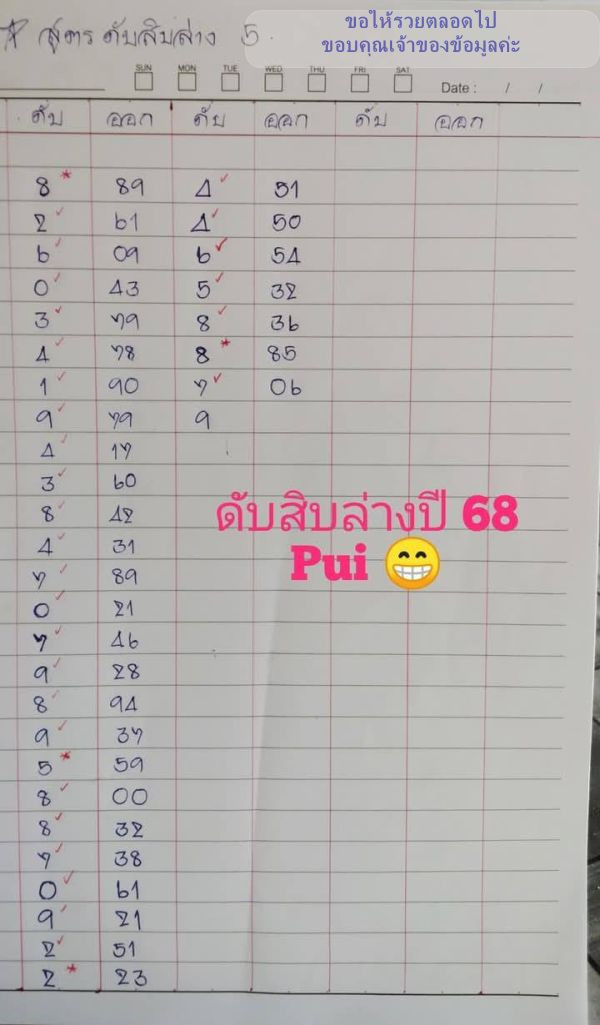 สูตร ดับสิบล่าง 5
ขอให้รวยตลอดไป
ขอบคุณเจ้าของข้อมูลค่ะ
SUN MON TUE WED THU FRI SAT
Date : / /
ดับ ออก ดับ ออก ดับ ออก
8 * 89 4 ✓ 51
2 ✓ 61 4 ✓ 50
6 ✓ 09 6 ✓ 54
0 ✓ 43 5 ✓ 32
3 ✓ 79 8 ✓ 36
4 ✓ 78 8 * 85
1 ✓ 90 7 ✓ 06
9 ✓ 79 9
4 ✓ 17
3 ✓ 60
8 ✓ 42
4 ✓ 31
7 ✓ 89
0 ✓ 21
7 ✓ 46
9 ✓ 28
8 ✓ 94
9 ✓ 37
5 * 59
8 ✓ 00
8 ✓ 32
7 ✓ 38
0 ✓ 61
9 ✓ 21
2 ✓ 51
2 * 23
ดับสิบล่างปี 68
Pui 😁